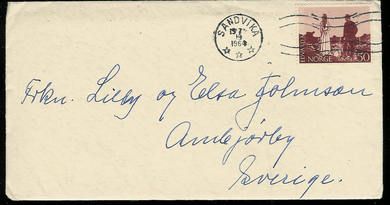 SANDVIKA
1964
NORGE 50
Frkn. Lilly og Elsa Johnson
Ambjörby
Sverige.